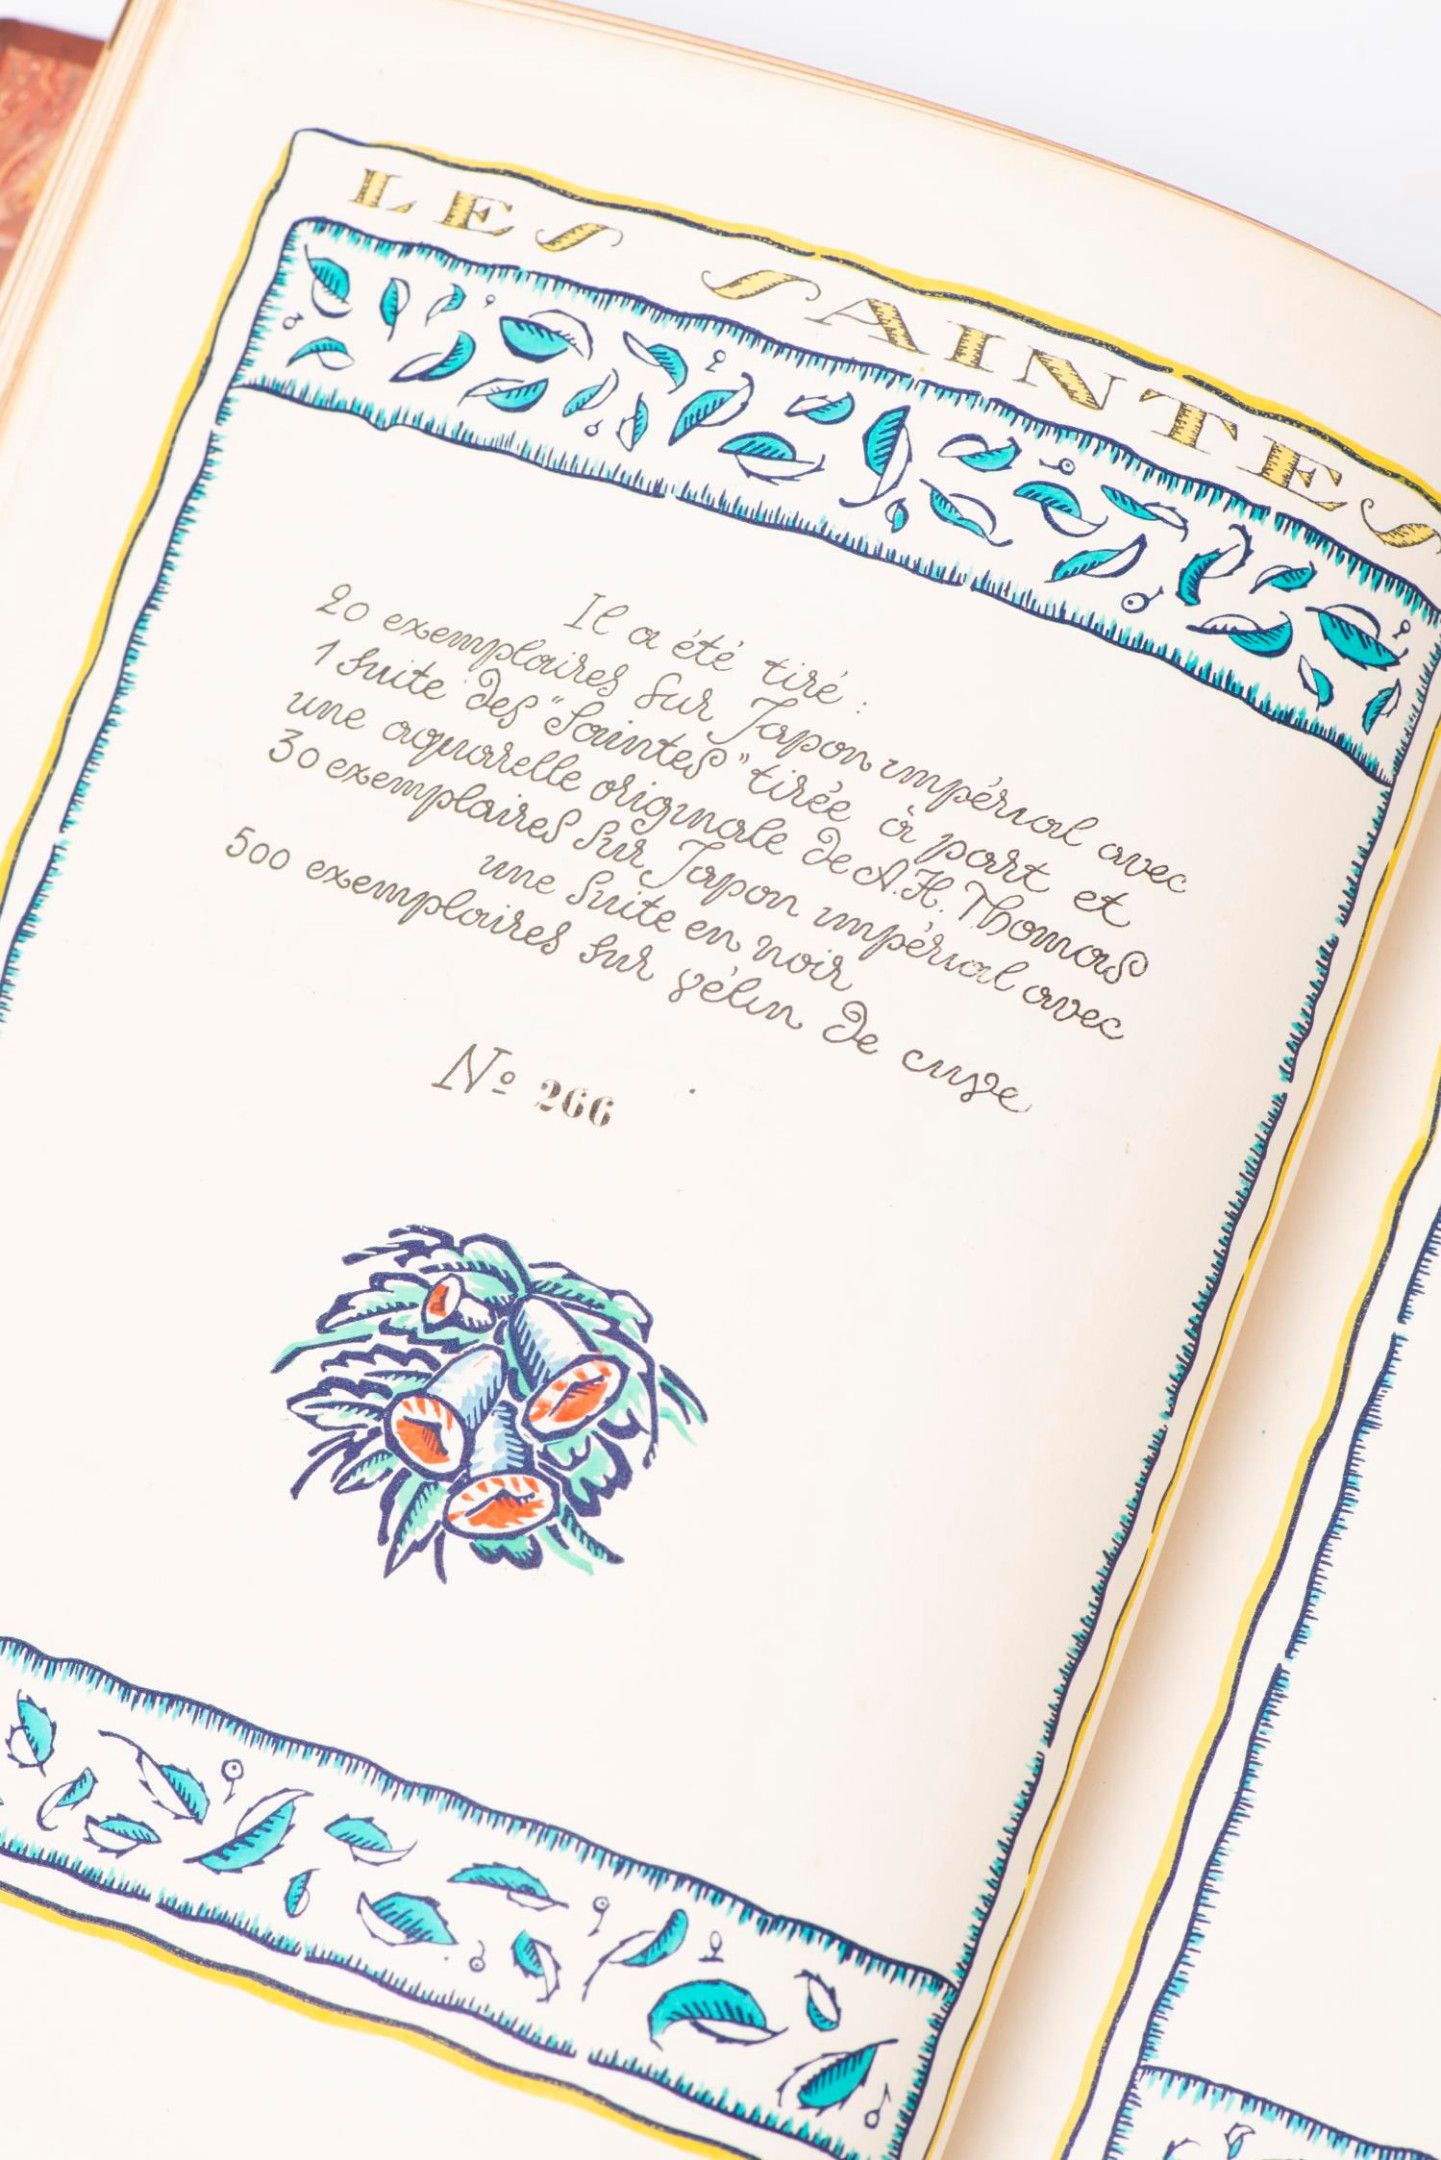 LES SAINTES
Il a été tiré :
20 exemplaires sur Japon impérial avec
1 suite des "Saintes" tirée à part et
une aquarelle originale de A.H. Thomas
30 exemplaires sur Japon impérial avec
une suite en noir
500 exemplaires sur vélin de cuve
Nº 266